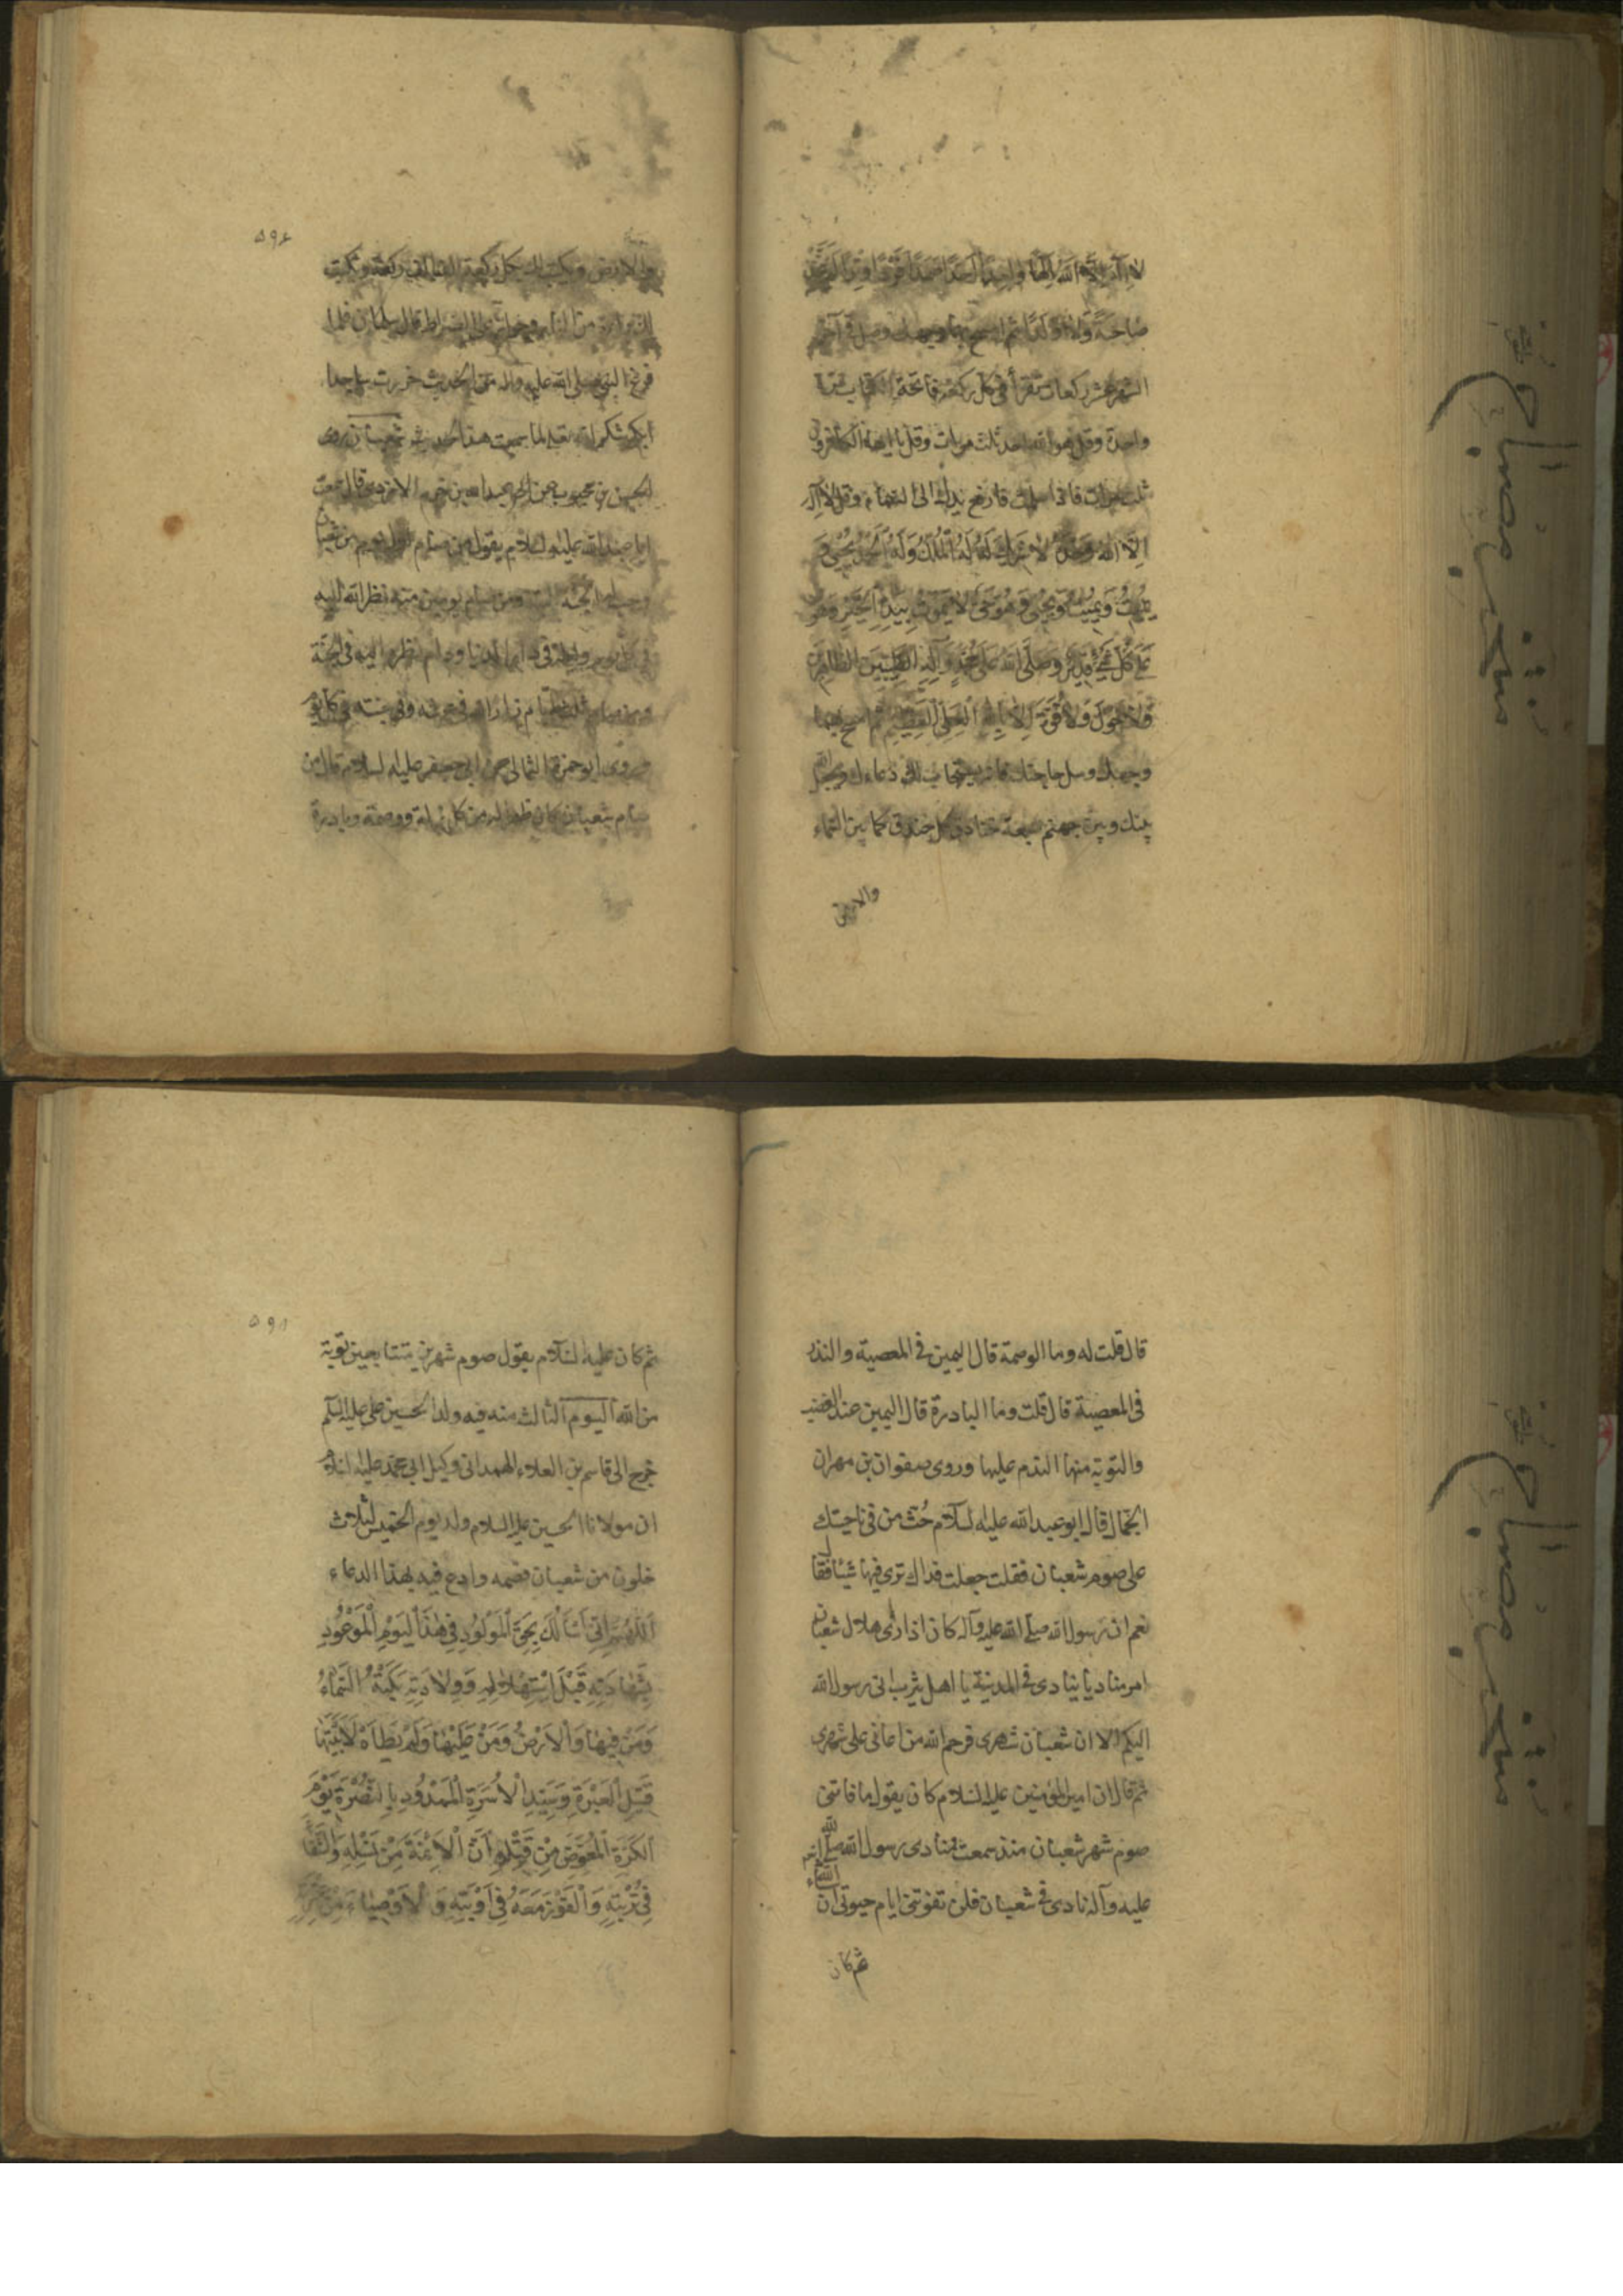 لا اله الا الله الها واحدا احدا صمدا فردا وترا لم يتخذ
صاحبة ولا ولدا ثم امسح بهما وجهك وصل في آخر
الشهر عشر ركعات تقرأ في كل ركعة فاتحة الكتاب مرة
واحدة وقل هو الله احد ثلث مرات وقل يا ايها الكافرون
ثلث مرات فاذا سلمت فارفع يديك الى السماء وقل لا اله
الا الله وحده لا شريك له له الملك وله الحمد يحيي و
يميت ويميت ويحيي وهو حي لا يموت بيده الخير وهو
على كل شيء قدير وصلى الله على محمد وآله الطيبين الطاهرين
ولا حول ولا قوة الا بالله العلي العظيم ثم امسح بهما
وجهك وسل حاجتك فانه يستجاب لك دعاءك ويجعل الله
بينك وبين جهنم سبعة خنادق كل خندق كما بين السماء
والارض
۵۹۶
والارض ويكتب لك بكل ركعة الف الف ركعة ويكتب
لك براءة من النار وجواز على الصراط قال سلمان فلما
فرغ النبي صلى الله عليه وآله من الحديث خررت ساجدا
ابكي شكرا لله تعالى لما سمعت هذا الحديث شعبان روى
الحسن بن محبوب عن عبد الله بن الازدي قال سمعت
ابا عبد الله عليه السلام يقول من صام اول يوم من شعبان
وجبت له الجنة البتة ومن صام يومين منه نظر الله اليه
في كل يوم وليلة في دار الدنيا ودام نظره اليه في الجنة
ومن صام ثلثة ايام زار الله في عرشه وفي جنته في كل يوم
وروى ابو حمزة الثمالى عن ابى جعفر عليه السلام قال من
صام شعبان كان طهرا له من كل زلة ووصمة وبادرة
قال قلت له وما الوصمة قال اليمين في المعصية والنذر
في المعصية قال قلت وما البادرة قال اليمين عند الغضب
والتوبة منها الندم عليها وروى صفوان بن مهران
الجمال قال قال ابو عبد الله عليه السلام حُث من في ناحيتك
على صوم شعبان فقلت جعلت فداك ترى فيها شيئا فقال
نعم ان رسول الله صلى الله عليه وآله كان اذا راى هلال شعبان
امر مناديا ينادى في المدينة يا اهل يثرب انى رسول الله
اليكم الا ان شعبان شهرى فرحم الله من اعانى على شهرى
ثم قال ان امير المؤمنين عليه السلام كان يقول ما فاتنى
صوم شهر شعبان منذ سمعت منادى رسول الله صلى الله
عليه وآله نادى في شعبان فلن تفوتنى ايام حيوتى ان شاء الله
ثم كان
۵۹۸
ثم كان عليه السلام يقول صوم شهرين متتابعين توبة
من الله اليوم الثالث منه فيه ولد الحسين على عليه السلم
خرج الى قاسم بن العلاء الهمدانى وكيل ابى محمد عليه السلام
ان مولانا الحسين عليه السلام ولد يوم الخميس لثلاث
خلون من شعبان فصمه وادع فيه بهذا الدعاء
اَللّٰهُمَّ اِنّى اَسْأَلُكَ بِحَقِّ الْمَوْلُودِ فِى هٰذَا الْيَوْمِ الْمَوْعُودِ
بِشَهَادَتِهِ قَبْلَ اسْتِهْلَالِهِ وَوِلَادَتِهِ بَكَتْهُ السَّمَاءُ
وَمَنْ فِيهَا وَالْاَرْضُ وَمَنْ عَلَيْهَا وَلَمْ يَطَأْ لَابَتَيْهَا
قَتِيلِ الْعَبْرَةِ وَسَيِّدِ الْاُسْرَةِ الْمَمْدُودِ بِالنُّصْرَةِ يَوْمَ
الْكَرَّةِ الْمُعَوَّضِ مِنْ قَتْلِهِ اَنَّ الْاَئِمَّةَ مِنْ نَسْلِهِ وَالشِّفَاءَ
فِى تُرْبَتِهِ وَالْفَوْزَ مَعَهُ فِى اَوْبَتِهِ وَالْاَوْصِيَاءَ مِنْ عِتْرَتِهِ